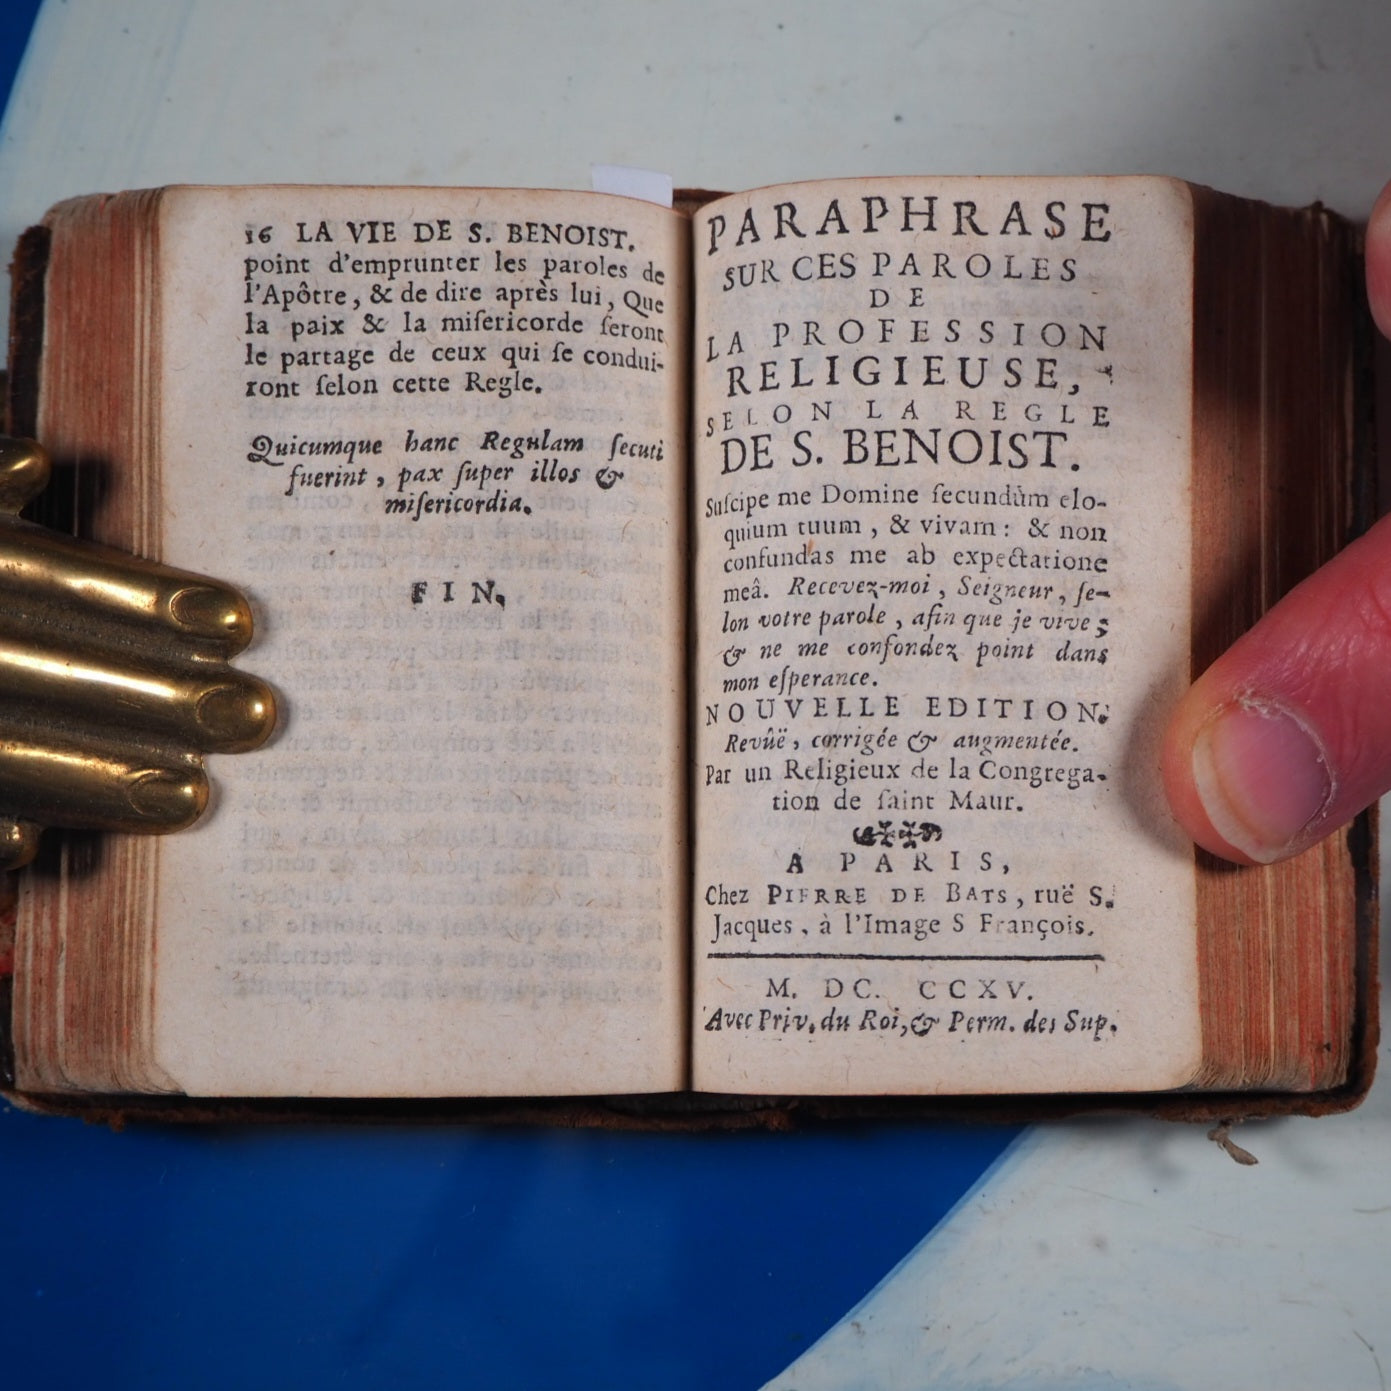 16 LA VIE DE S. BENOIST.
point d'emprunter les paroles de
l'Apôtre, & de dire après lui, Que
la paix & la miſericorde ſeront
le partage de ceux qui ſe condui-
ront ſelon cette Regle.
Quicumque hanc Regulam ſecuti
fuerint, pax ſuper illos &
miſericordia.
FIN.
PARAPHRASE
SUR CES PAROLES
DE
LA PROFESSION
RELIGIEUSE,
SELON LA REGLE
DE S. BENOIST.
Suſcipe me Domine ſecundùm elo-
quium tuum, & vivam : & non
confundas me ab expectatione
meâ. Recevez-moi, Seigneur, ſe-
lon votre parole, afin que je vive ;
& ne me confondez point dans
mon eſperance.
NOUVELLE EDITION.
Revûë, corrigée & augmentée.
Par un Religieux de la Congrega-
tion de ſaint Maur.
A PARIS,
Chez PIERRE DE BATS, ruë S.
Jacques, à l'Image S François.
M. DC. CCXV.
Avec Priv. du Roi, & Perm. des Sup.